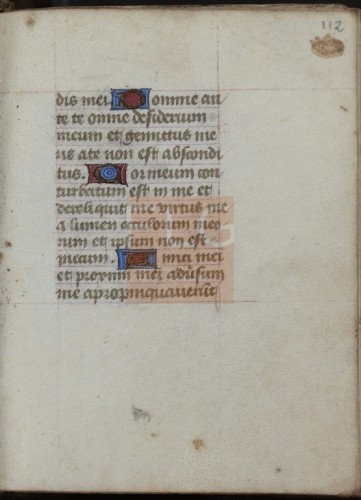 112
dis mei. Domine an
te te omne desiderium
meum et gemittus me
us a te non est abscondi
tus. Cor meum con
turbatum est in me et
dereliquit me virtus me
a lumen occulorum meo
rum et ipsum non est
mecum. Amici mei
et proximi mei adūsum
me apropinquaverūt